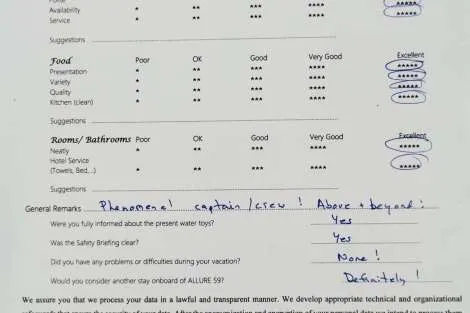 Availability * ** *** **** *****
Service * ** *** **** *****
Suggestions
Food Poor OK Good Very Good Excellent
Presentation * ** *** **** *****
Variety * ** *** **** *****
Quality * ** *** **** *****
Kitchen (clean) * ** *** **** *****
Suggestions
Rooms/ Bathrooms Poor OK Good Very Good Excellent
Neatly * ** *** **** *****
Hotel Service
(Towels, Bed,...) * ** *** **** *****
Suggestions
General Remarks Phenomenal captain/crew! Above + beyond!
Were you fully informed about the present water toys? Yes
Was the Safety Briefing clear? Yes
Did you have any problems or difficulties during your vacation? None!
Would you consider another stay onboard of ALLURE 59? Definitely!
We assure you that we process your data in a lawful and transparent manner. We develop appropriate technical and organizational